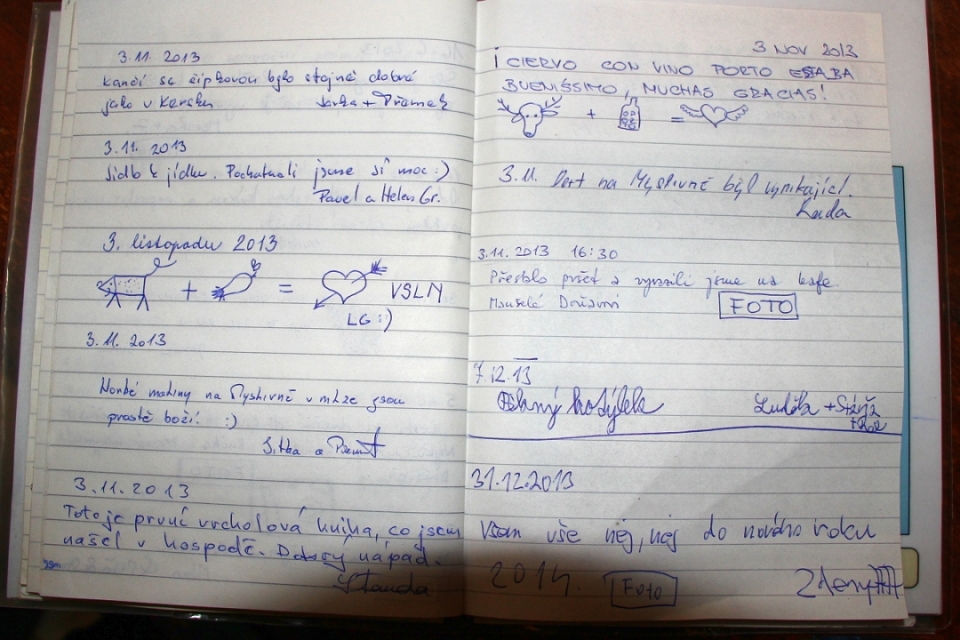 3.11.2013
kančí se šípkovou bylo stejně dobré
jako v Kersku
3.11.2013
Sidlo k jídlu. Pochutnali jsme si moc :)
Pavel a Helena Gr.
3. listopadu 2013
+ = VSLM
LG :)
3.11.2013
na Myslivně v mlze jsou
prostě boží! :)
Jitka a
3.11.2013
Toto je první vrcholová kniha, co jsem
našel v hospodě. Dobrý nápad.
Standa
3 NOV 2013
¡CIERVO CON VINO PORTO ESTABA
BUENÍSSIMO, MUCHAS GRACIAS!
+ =
3.11. na Myslivně byl vynikající.
Lada
3.11.2013 16:30
Přestalo pršet a vyrazili jsme na kafe
Manželé
FOTO
7.12.13
Luděk +
31.12.2013
Všem vše nej, nej do nového roku
2014. Foto